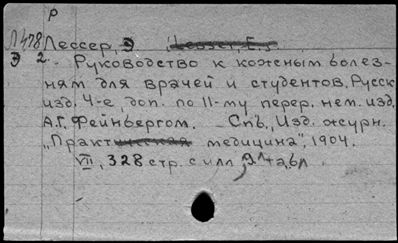 р
Л478 Лессер, Э
Э 2. Руководство к кожным болез-
ням для врачей и студентов. Русск.
изд. 4-е, доп. по 11-му перер. нем. изд.
А.Г. Фейнбергом. Спб., Изд. журн.
„Практическая медицина", 1904.
VII, 328 стр. с илл.,